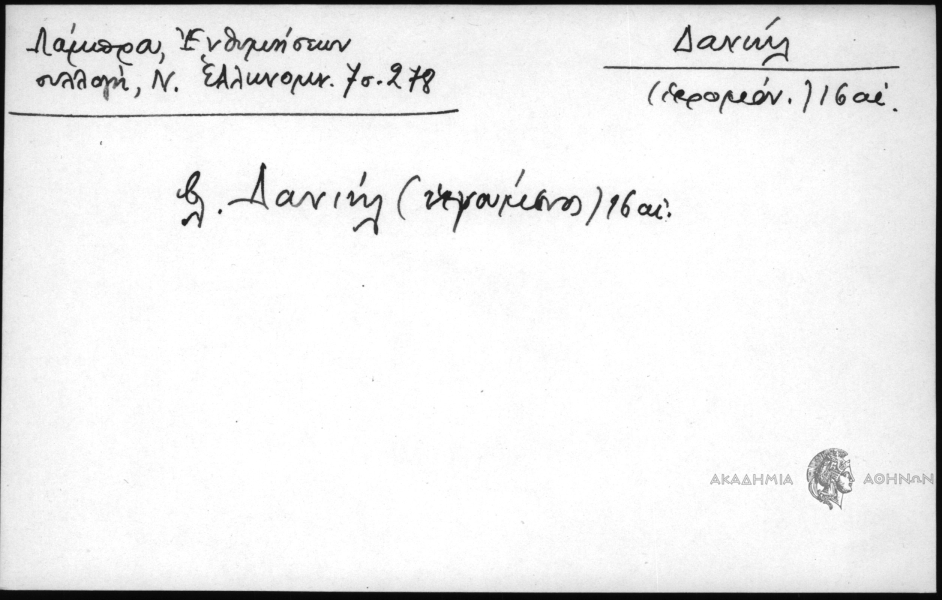 Λάμπρου, Ἐνθυμήσεων
συλλογή, Ν. Ἑλληνομν. 7 σ. 278
Δανιήλ
(ἱερομόν.) 16 αἰ.
βλ. Δανιήλ (ἡγούμενος) 16 αἰ.
ΑΚΑΔΗΜΙΑ ΑΘΗΝΩΝ